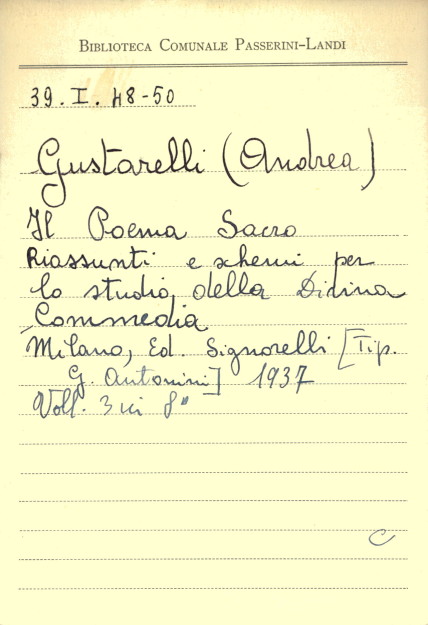 BIBLIOTECA COMUNALE PASSERINI-LANDI
39. I. 48-50
Gustarelli (Andrea)
Il Poema Sacro
Riassunti e schemi per
lo studio della Divina
Commedia
Milano, Ed. Signorelli [Tip.
G. Antonini] 1937
Voll. 3 in 8°
C